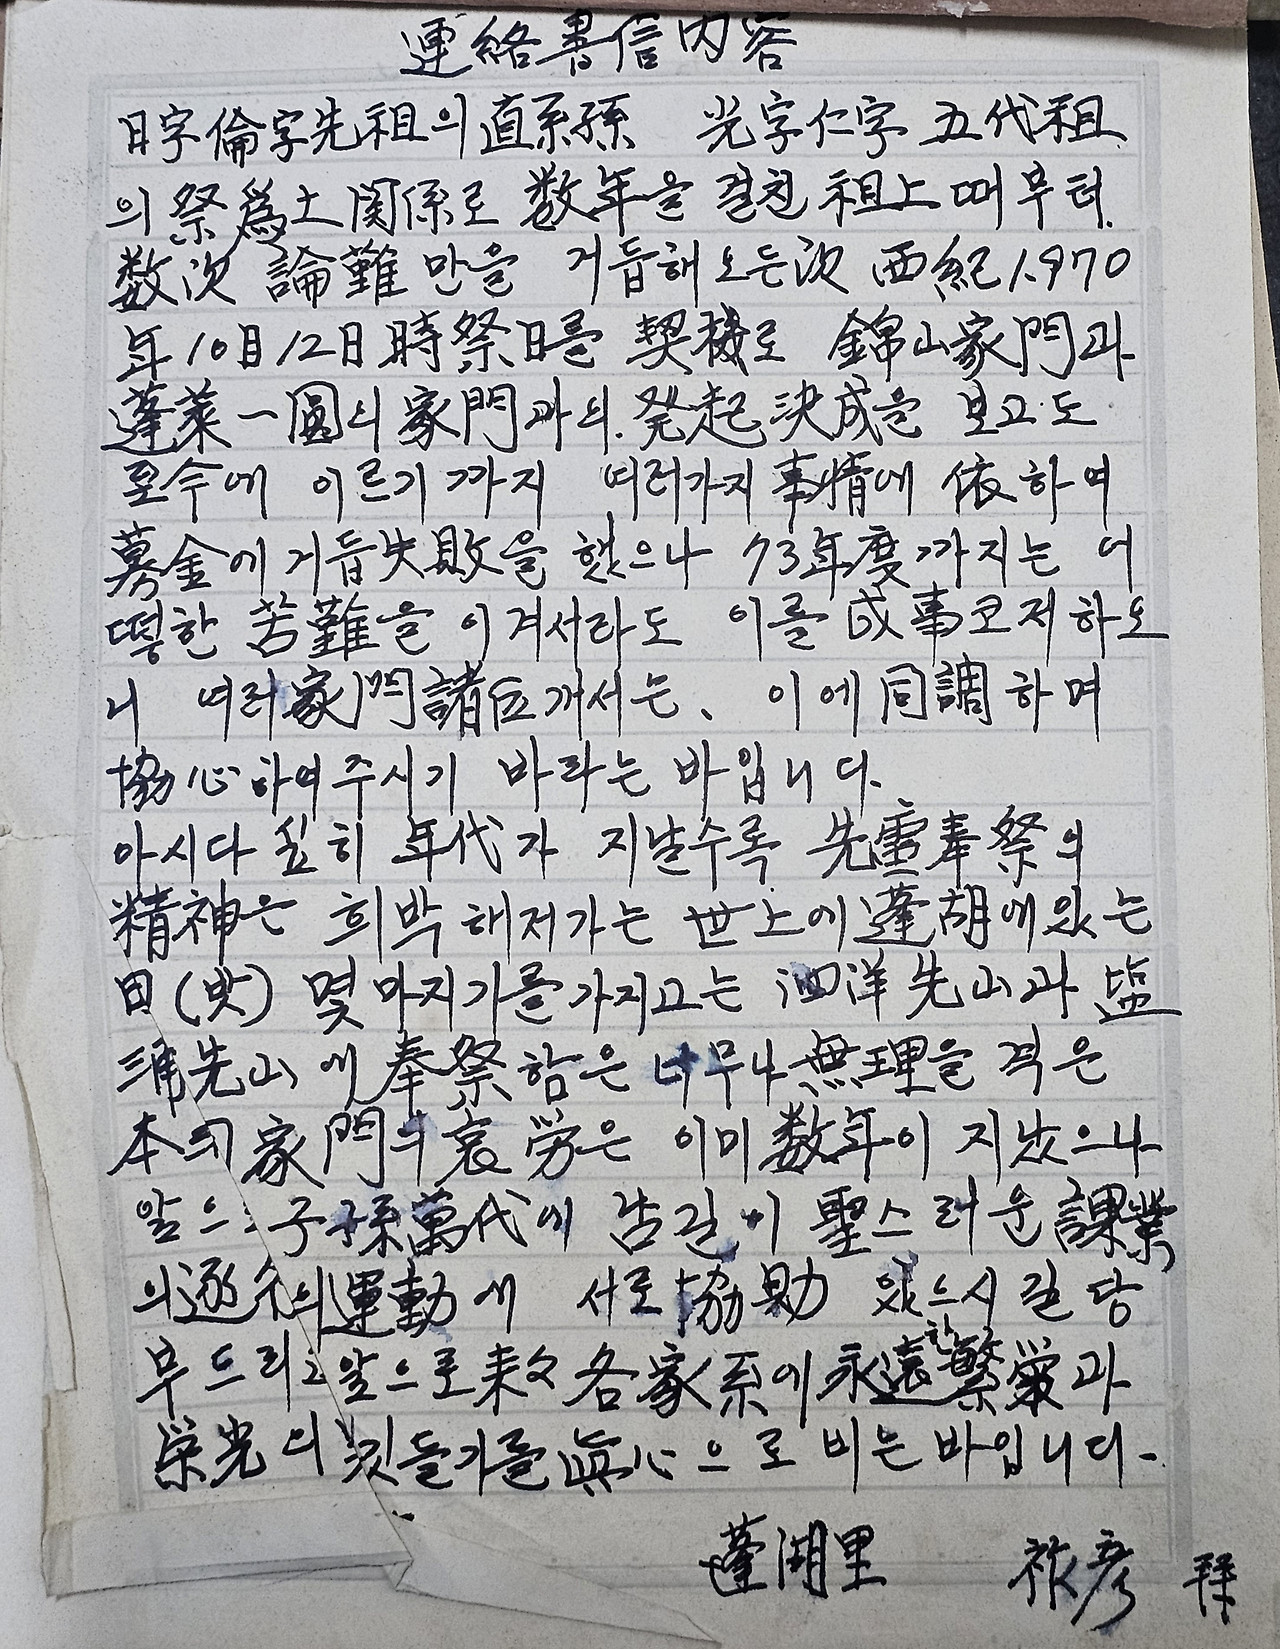 連絡書信内容
日字倫字先祖의直系孫 光字仁字 五代祖
의祭爲土関係로 数年을 걸친 祖上때부터.
数次 論難만을 거듭해오든次 西紀1970
年10月12日時祭日를 契機로 錦山家門과
蓬萊一圓의家門과의.発起決成을 보고도
至今에 이르기까지 여러가지事情에 依하여
募金에거듭失敗을 했으나 73年度까지는 어
떻한 苦難을이겨서라도 이를成事코저하오
니 여러家門諸位께서는、 이에同調하며
協心하여주시기 바라는바입니다.
아시다싶히 年代가 지날수록 先霊奉祭의
精神은 희박해저가는 世上에蓬胡에있는
田(밧) 몇마지기를가지고는 泗洋先山과 塩
浦先山에奉祭함은너무나無理을격은
本의家門의哀労은이미数年이지났으나
앞으로子孫萬代에 길이 聖스러운課業
의逐行의運動에 서로協助 있으시길당
부드리고앞으로来々各家系에永遠한繁榮과
栄光의깃들기를眞心으로비는바입니다.
蓬湖里 祚彦 拜